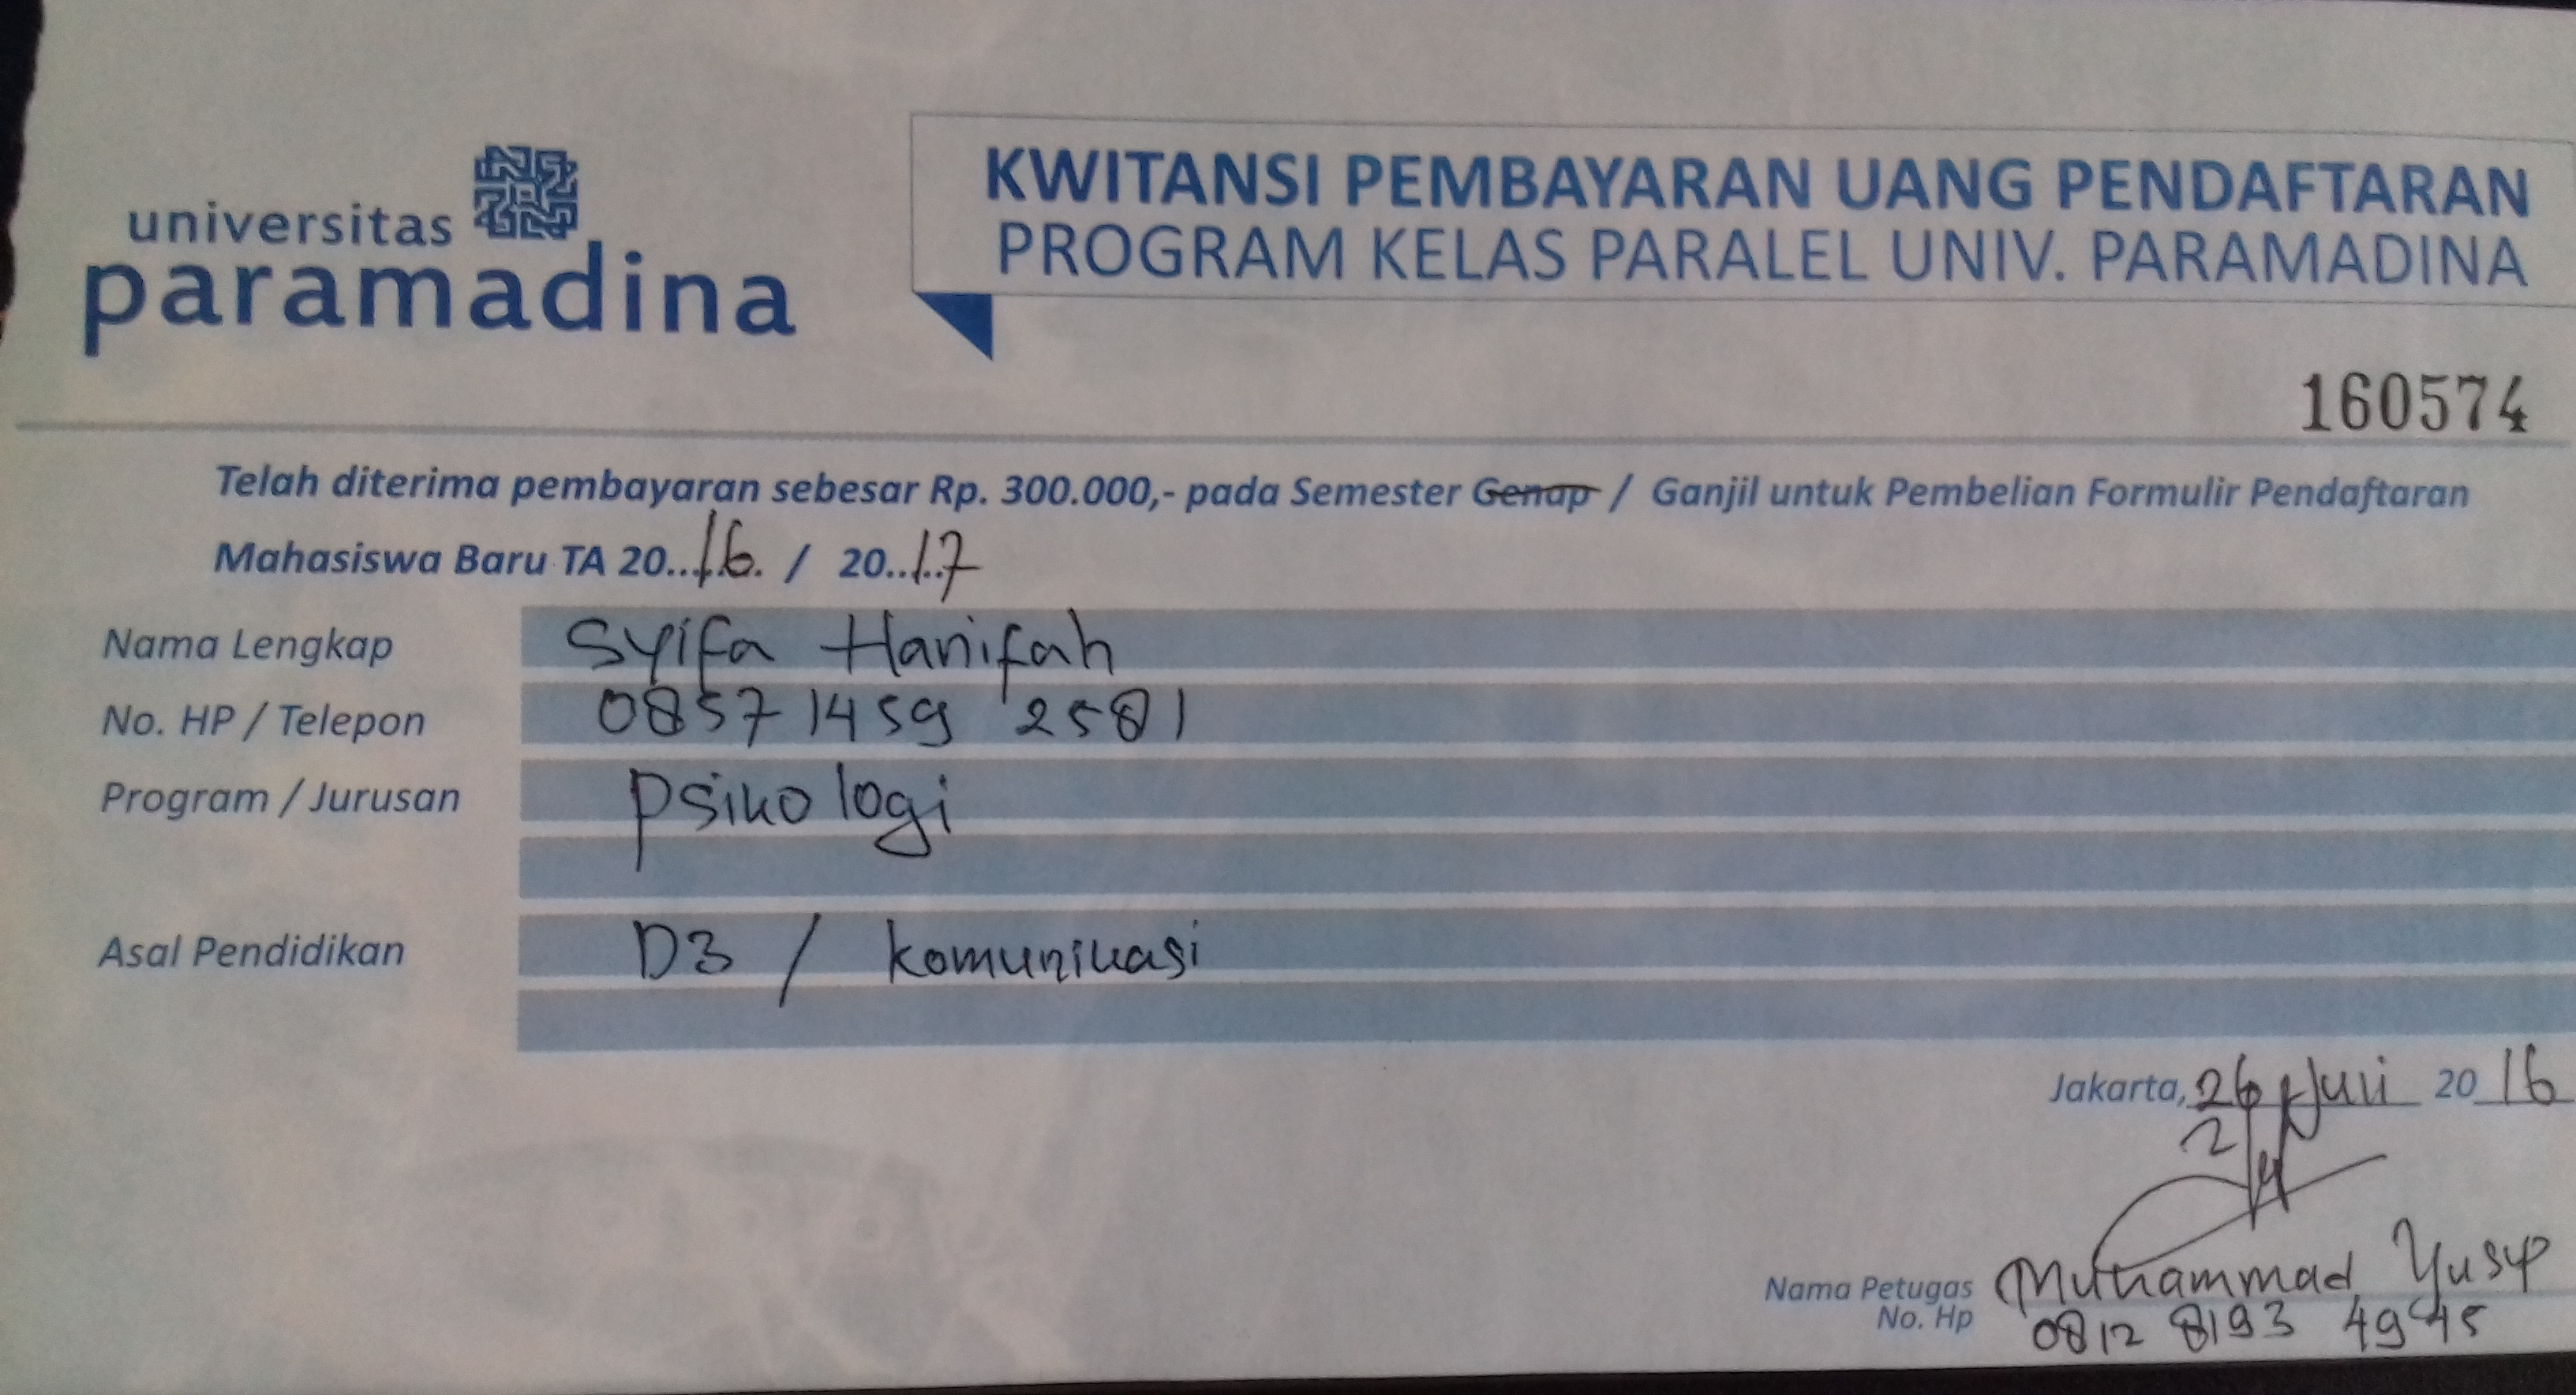 universitas
paramadina
KWITANSI PEMBAYARAN UANG PENDAFTARAN
PROGRAM KELAS PARALEL UNIV. PARAMADINA
160574
Telah diterima pembayaran sebesar Rp. 300.000,- pada Semester Genap / Ganjil untuk Pembelian Formulir Pendaftaran
Mahasiswa Baru TA 20..16. / 20..17
Nama Lengkap Syifa Hanifah
No. HP / Telepon 0857 1459 2581
Program / Jurusan Psikologi
Asal Pendidikan D3 / komunikasi
Jakarta, 26 Juli 2016
Nama Petugas Muhammad Yusup
No. Hp 0812 8193 4945